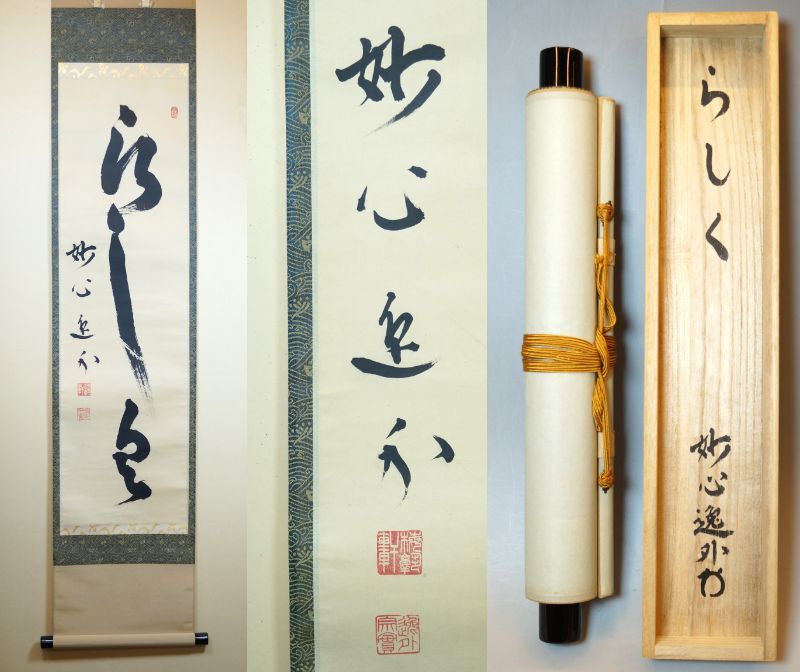 らしく
妙心逸外
妙心逸外
逸外
らしく
妙心逸外